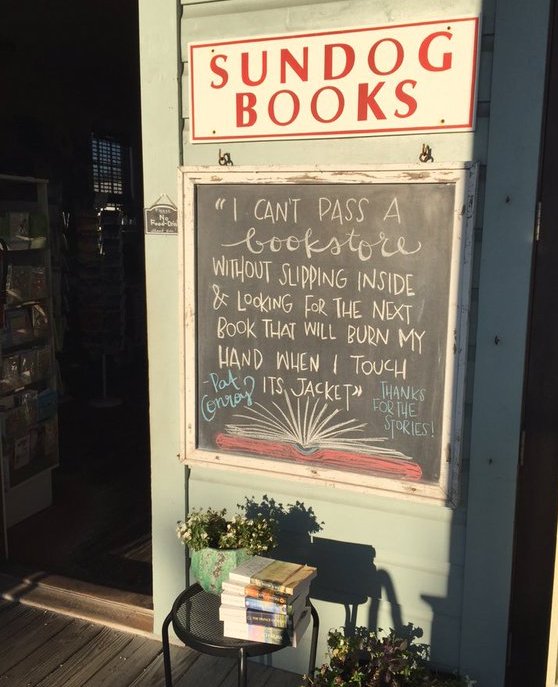 SUNDOG
BOOKS
"I CAN'T PASS A
bookstore
WITHOUT SLIPPING INSIDE
& LOOKING FOR THE NEXT
BOOK THAT WILL BURN MY
HAND WHEN I TOUCH
ITS JACKET"
-Pat
Conroy
THANKS
FOR THE
STORIES!
No